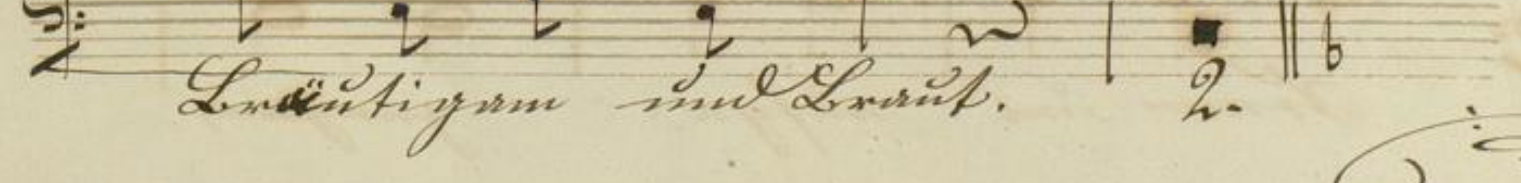 Bräutigam und Braut. 2.